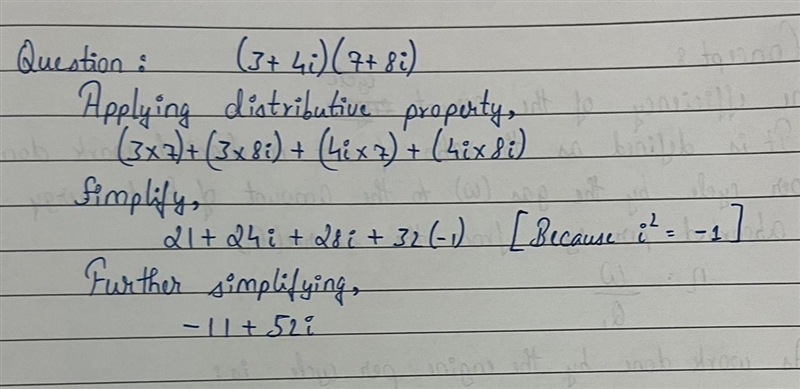 Question : (3+ 4i)(7+ 8i)
Applying distributive property,
(3×7)+(3×8i) + (4i×7) + (4i×8i)
Simplify,
21 + 24i + 28i + 32(-1) [Because i² = -1]
Further simplifying,
-11 + 52i